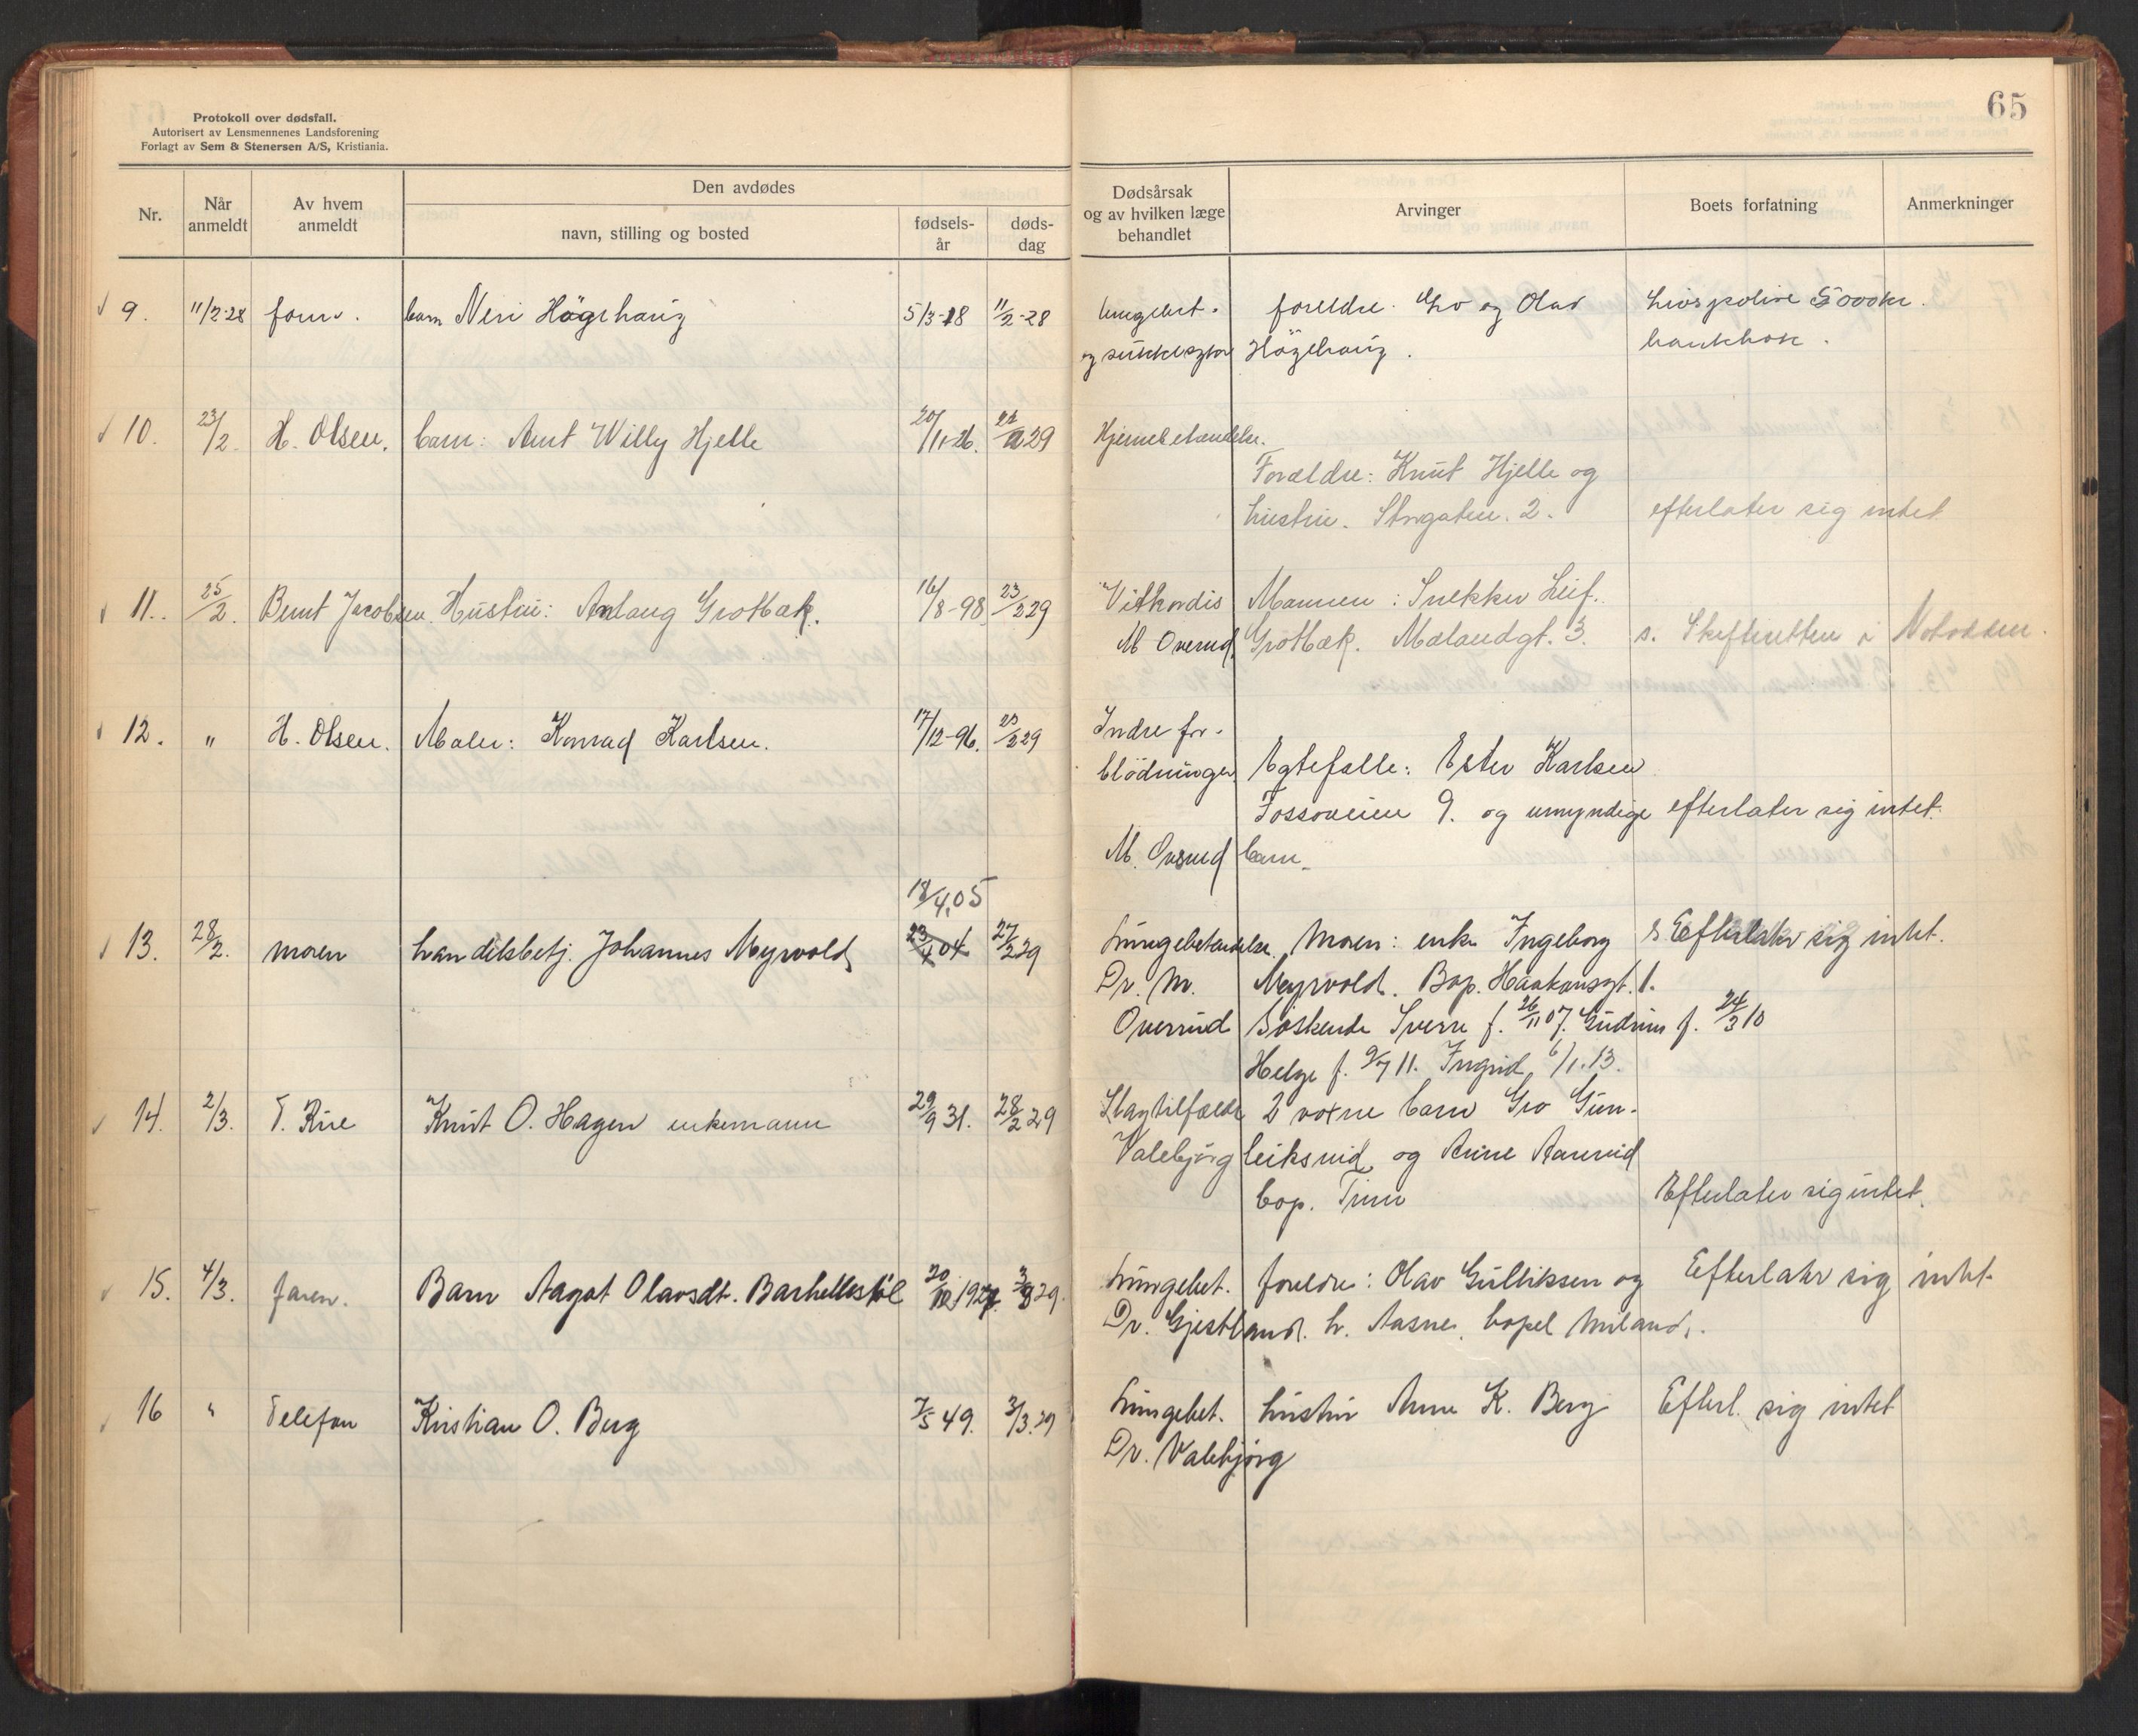 Protokoll over dødsfall.
Autorisert av Lensmennenes Landsforening
Forlagt av Sem & Stenersen A/S, Kristiania.
65
Nr.
Når anmeldt
Av hvem anmeldt
Den avdødes
navn, stilling og bosted
fødsels-år
døds-dag
Dødsårsak og av hvilken læge behandlet
Arvinger
Boets forfatning
Anmerkninger
9. 11/2-28 barn Neri Högehaug 5/3-18 11/2-28 lungebet. foreldre. Gro og Olav Livspolise 5000kr.
og Högehaug. bankbok.
10. 23/2. H. Olsen. barn: Arnt Willy Hjelle 20/11-26. 22/2 29 Hjernebetændelse.
Forældre: Knut Hjelle og
hustru. Storgaten. 2. efterlater sig intet
11. 25/2. Bernt Jacobsen. Hustru: Anlaug Grotbæk. 16/8-98. 23/2 29 Vitkordis Mannen: Snekker Leif.
M Overud. Grotbæk. Mælandgt. 3. s. Skifteretten i Notodden.
12. " H. Olsen. Maler: Konrad Karlsen. 17/12-96. 23/2 29 Indre for-
blödninger. Egtefelle: Ester Karlsen
Fossoveien 9. og umyndige efterlater sig intet.
M. Overud barn.
18/4.05
13. 28/2. moren handelsbetj. Johannes Myrvold 23/4 04 27/2 29 Lungebetendelse. Moren: enke Ingeborg Efterlater sig intet.
Dr. M. Myrvold. Bop. Haakonsgt. 1.
Overrud Söskende Sverre f. 26/11 07. Gudrun f. 24/3 10
Helge f. 9/7 11. Ingrid 6/1.13.
14. 2/3. T. Rue Knut O. Hagen enkemann 29/9 31. 28/2 29 Slagtilfælde 2 voxne barn Gro Gun-
Valebjørg leiksrud og Anne Aaserud
bop. Tinn Efterlater sig intet.
15. 4/3. faren. Barn Aagot Olavsdt. Barhellestöl 20/12 1927. 3/3 29. Lungebet. foreldre: Olav Gulliksen og Efterlater sig intet.
Dr. Gjestland. h. Aasne, bopel Miland.
16 " Telefon Kristian O. Berg 7/5 49. 3/3.29 Lungebet. hustru Anne K. Berg Efterl. sig intet
Dr. Valebjørg